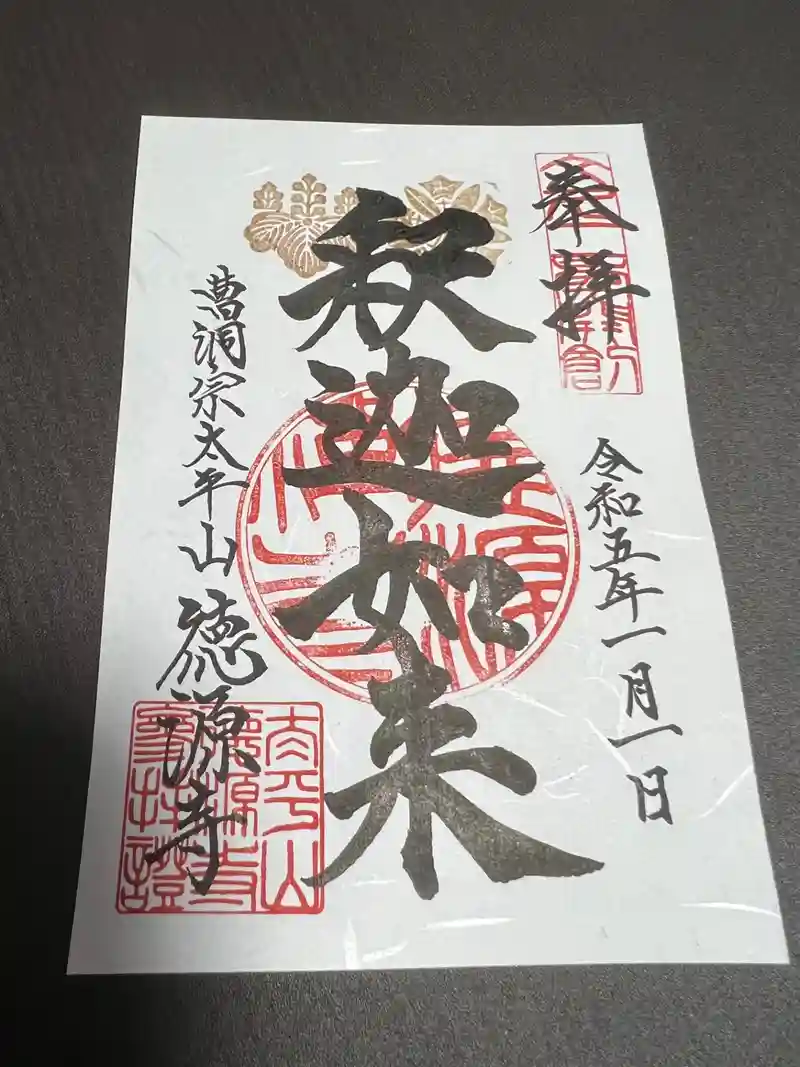 奉拝
令和五年一月一日
釈迦如来
曹洞宗太平山
徳源寺
太平山
徳源寺